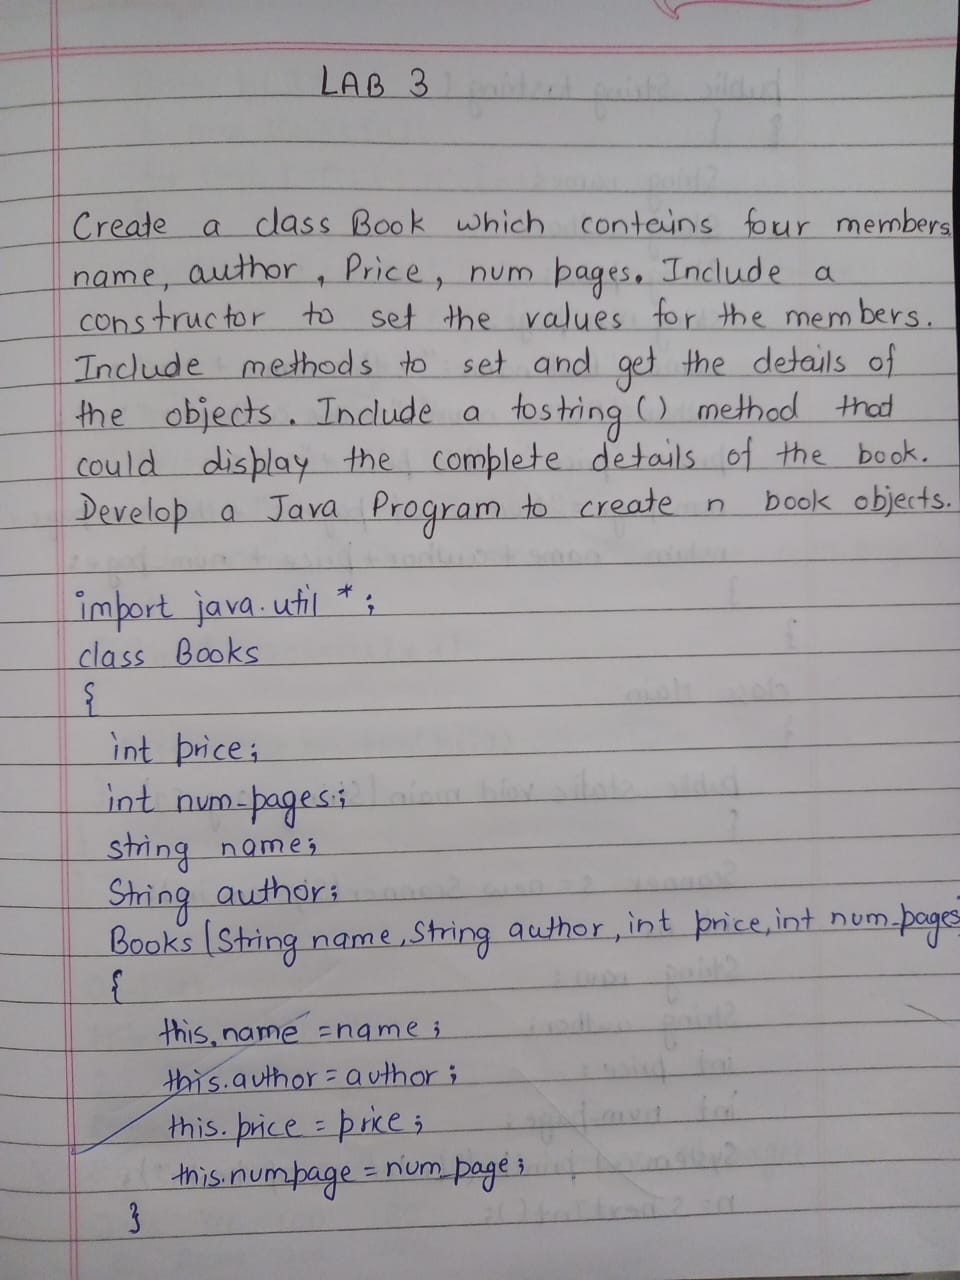 LAB 3
Create a class Book which contains four members
name, author, Price, num pages. Include a
constructor to set the values for the members.
Include methods to set and get the details of
the objects. Include a tostring () method that
could display the complete details of the book.
Develop a Java Program to create n book objects.
import java.util *;
class Books
{
int price;
int num_pages;
string name;
String author;
Books (String name, String author, int price, int num_pages
{
this.name = name;
this.author = author;
this.price = price;
this.numpage = num_page;
}